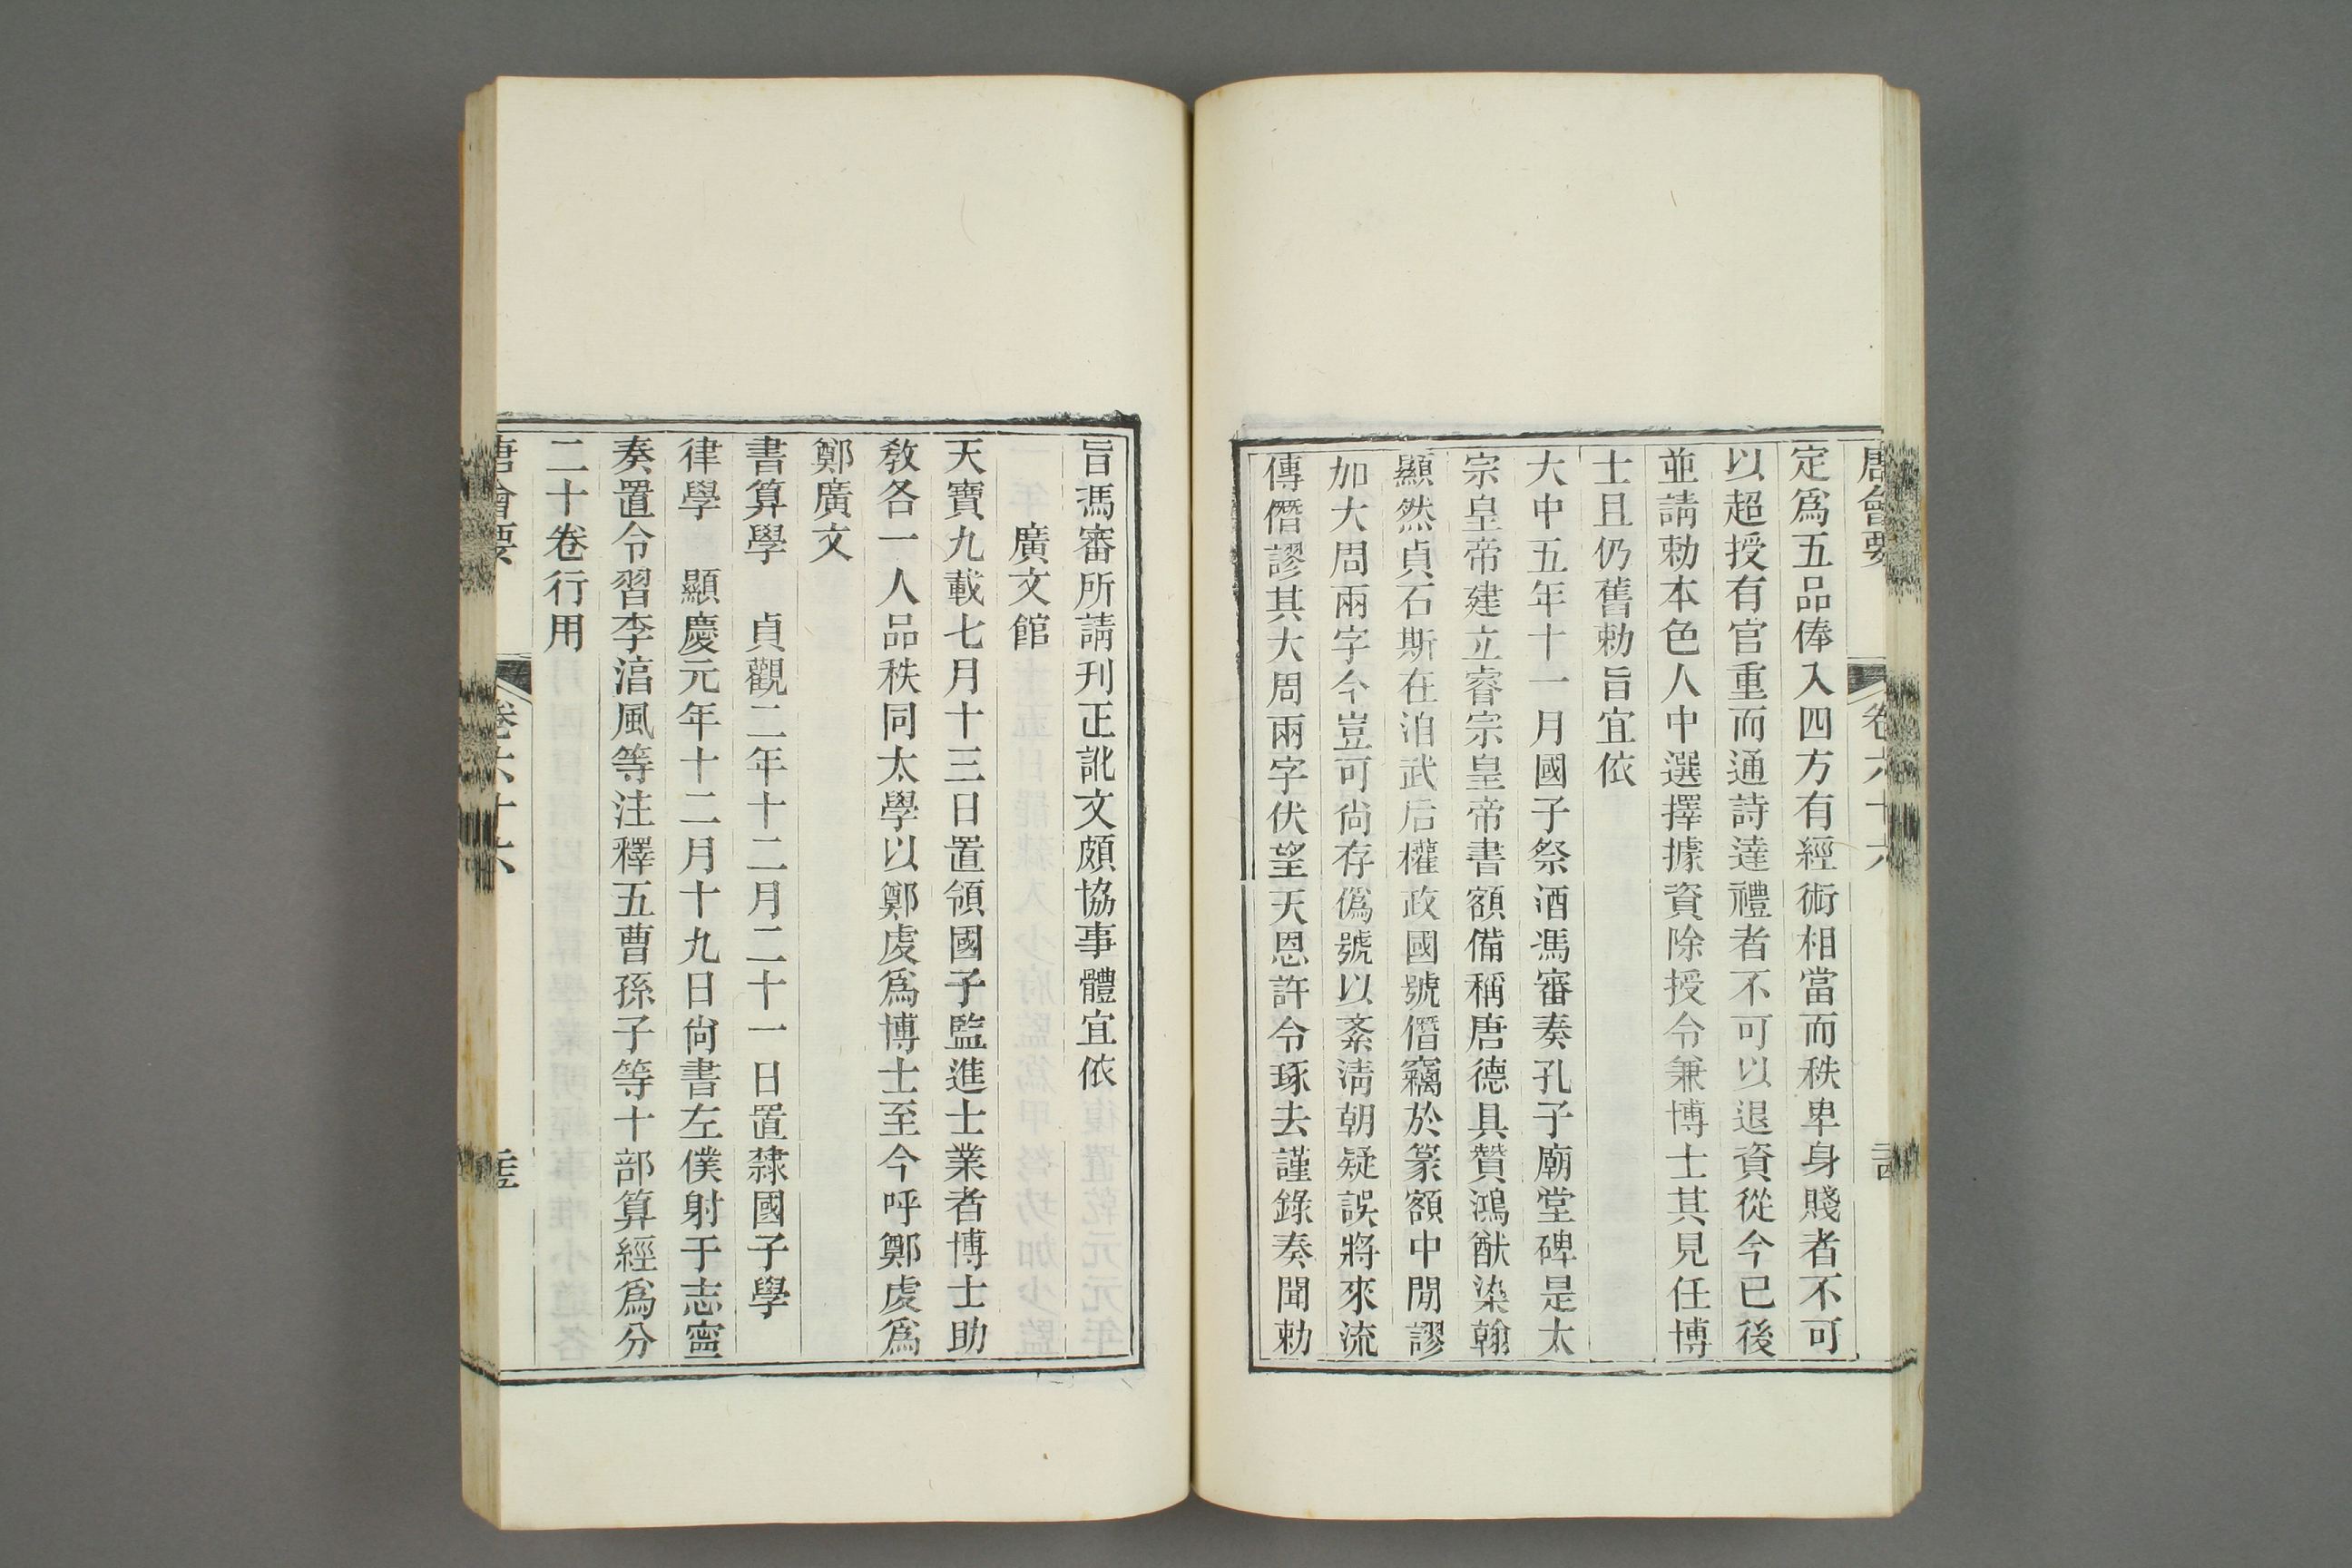 唐會要 卷六十六
定爲五品俸入四方有經術相當而秩卑身賤者不可
以超授有官重而通詩達禮者不可以退資從今已後
並請勅本色人中選擇據資除授令兼博士其見任博
士且仍舊勅旨宜依
大中五年十一月國子祭酒馮審奏孔子廟堂碑是太
宗皇帝建立睿宗皇帝書額備稱唐德具贊鴻猷染翰
顯然貞石斯在洎武后權政國號僭竊於篆額中閒謬
加大周兩字今豈可尙存僞號以紊淸朝疑誤將來流
傳僭謬其大周兩字伏望天恩許令琢去謹錄奏聞勅
旨馮審所請刊正訛文頗協事體宜依
廣文館
天寶九載七月十三日置領國子監進士業者博士助
敎各一人品秩同太學以鄭虔爲博士至今呼鄭虔爲
鄭廣文
書算學　貞觀二年十二月二十一日置隸國子學
律學　顯慶元年十二月十九日尙書左僕射于志寧
奏置令習李湻風等注釋五曹孫子等十部算經爲分
二十卷行用
唐會要 卷六十六